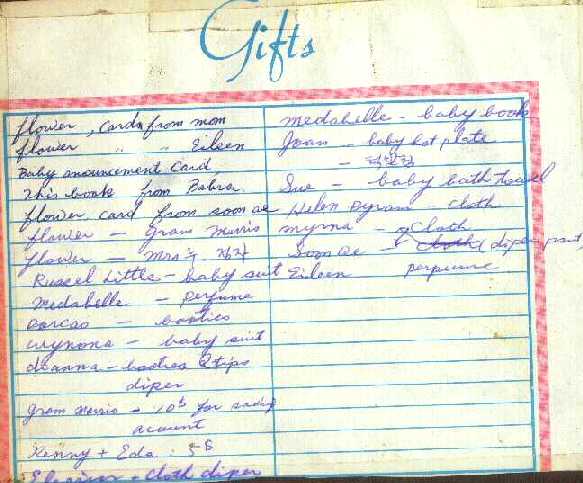 Gifts
flower, cards from mom
flower " " Eileen
Baby anouncement Card
This book from Babra
flower card from soon ae
flower - Gram Morris
flower - Mrs
Russel Little - baby suit
Medabelle - perfume
Dorcas - booties
Wynona - baby suit
deanna - booties Q tips
diper
Gram Morris - 10 for saving
acount
Kenny + Eda. 5
- cloth diper
Medabelle - baby book
Joan - baby hot plate
-
Sue - baby bath towel
Helen Byram - cloth
myrna - cloth
Soon ae - cloth (diper pant)
Eileen perpume